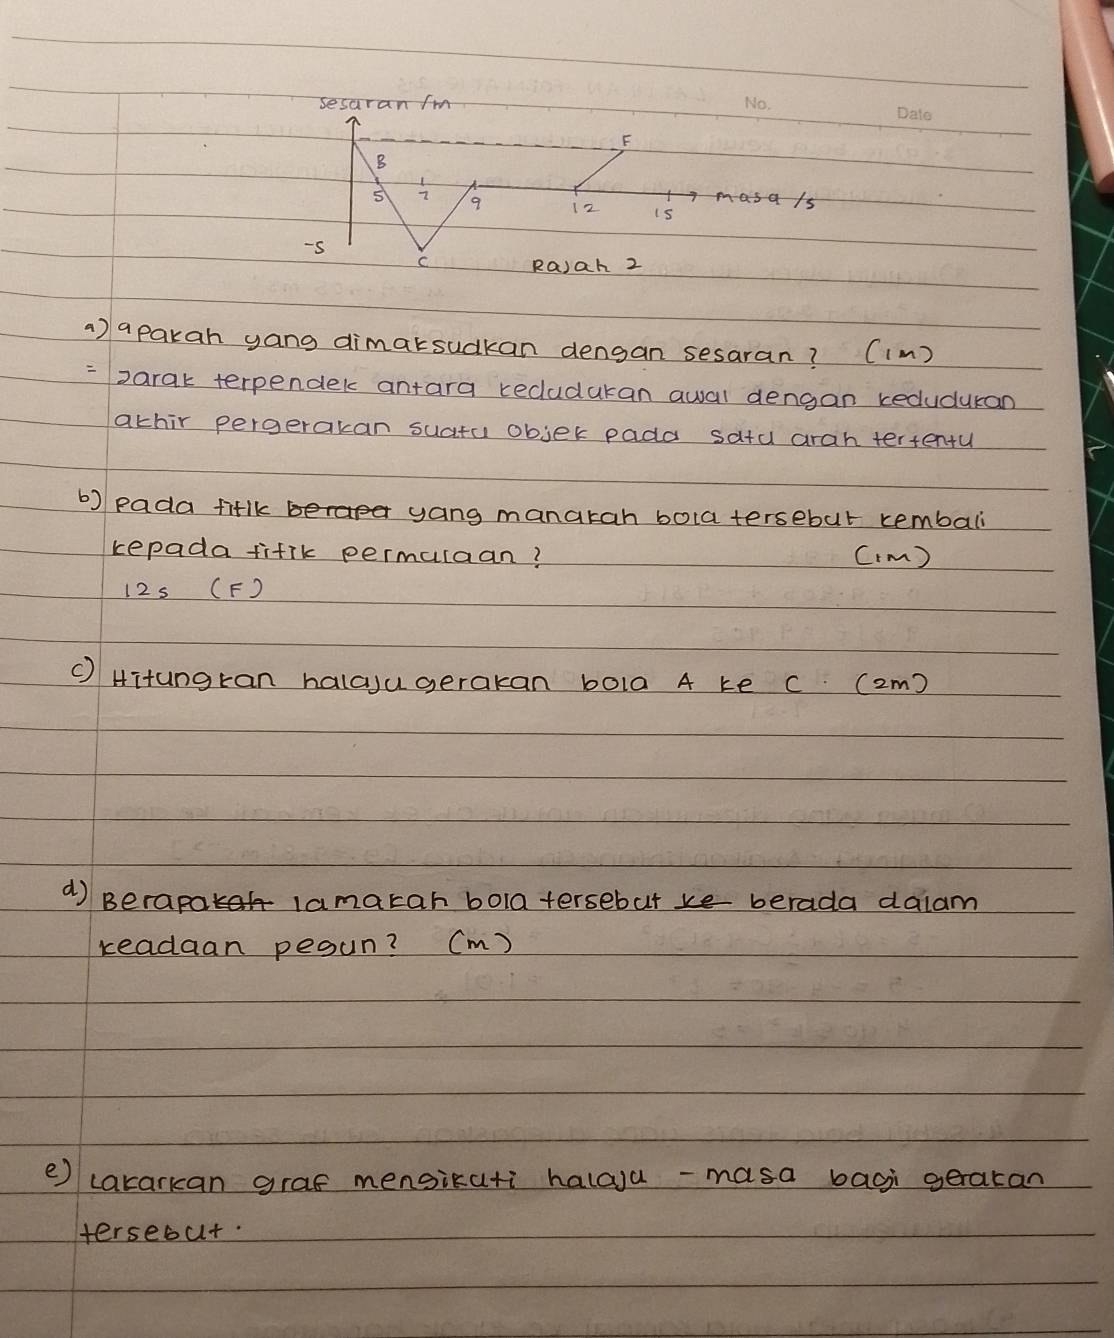 sesaran /m
No.
Date
F
B
5
7
9
12
15
masa /s
-5
C
Rajah 2
a) apakah yang dimaksudkan dengan sesaran? (1m)
= Jarak terpendek antara kedudukan awal dengan kedudukan
akhir pergerakan suatu objek pada satu arah tertentu
b) Pada titik berapa yang manakah bola tersebut kembali
kepada titik permulaan? (1m)
12s (F)
c) Hitungkan halaju gerakan bola A ke C. (2m)
d) Berapakah lamakah bola tersebut ke berada dalam
keadaan pegun? (m)
e) Lakarkan graf mengikuti halaju - masa bagi gerakan
tersebut.